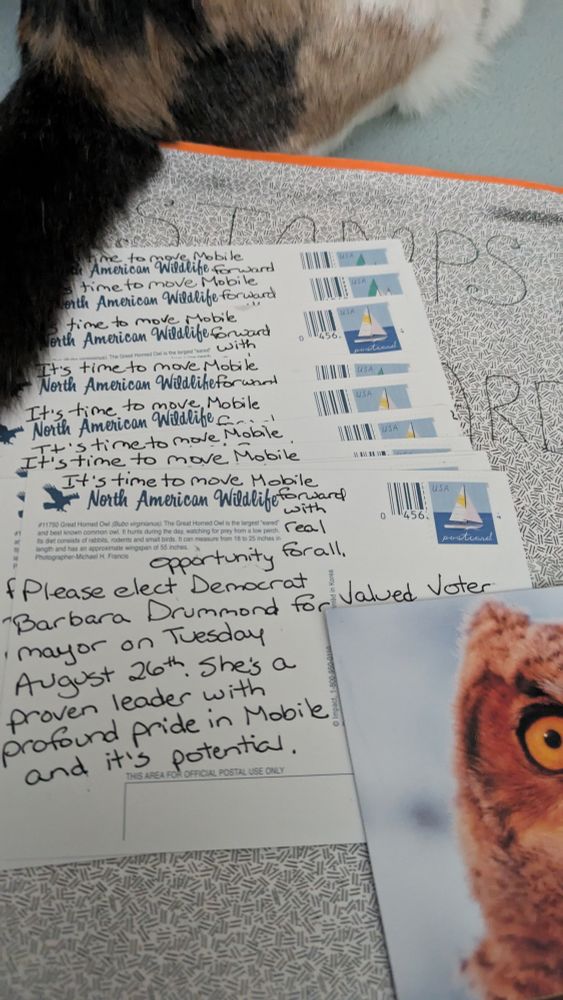 STAMPS
ARD
time to move Mobile
American Wildlife forward
USA
time to move Mobile
North American Wildlife forward
USA
time to move Mobile
North American Wildlife forward
with
USA
0 456
postcard
It's time to move Mobile
North American Wildlife forward
USA
It's time to move Mobile
North American Wildlife
USA
It's time to move Mobile
USA
It's time to move Mobile
It's time to move Mobile
North American Wildlife forward
with
real
opportunity for all.
#11750 Great Horned Owl (Bubo virginianus) The Great Horned Owl is the largest "eared"
and best known common owl. It hunts during the day, watching for prey from a low perch.
Its diet consists of rabbits, rodents and small birds. It can measure from 18 to 25 inches in
length and has an approximate wingspan of 55 inches.
Photographer-Michael H. Francis
0 456
USA
postcard
Please elect Democrat
Barbara Drummond for
mayor on Tuesday
August 26th. She's a
proven leader with
profound pride in Mobile
and it's potential.
Valued Voter
in Korea
© Impact, 1-800
THIS AREA FOR OFFICIAL POSTAL USE ONLY